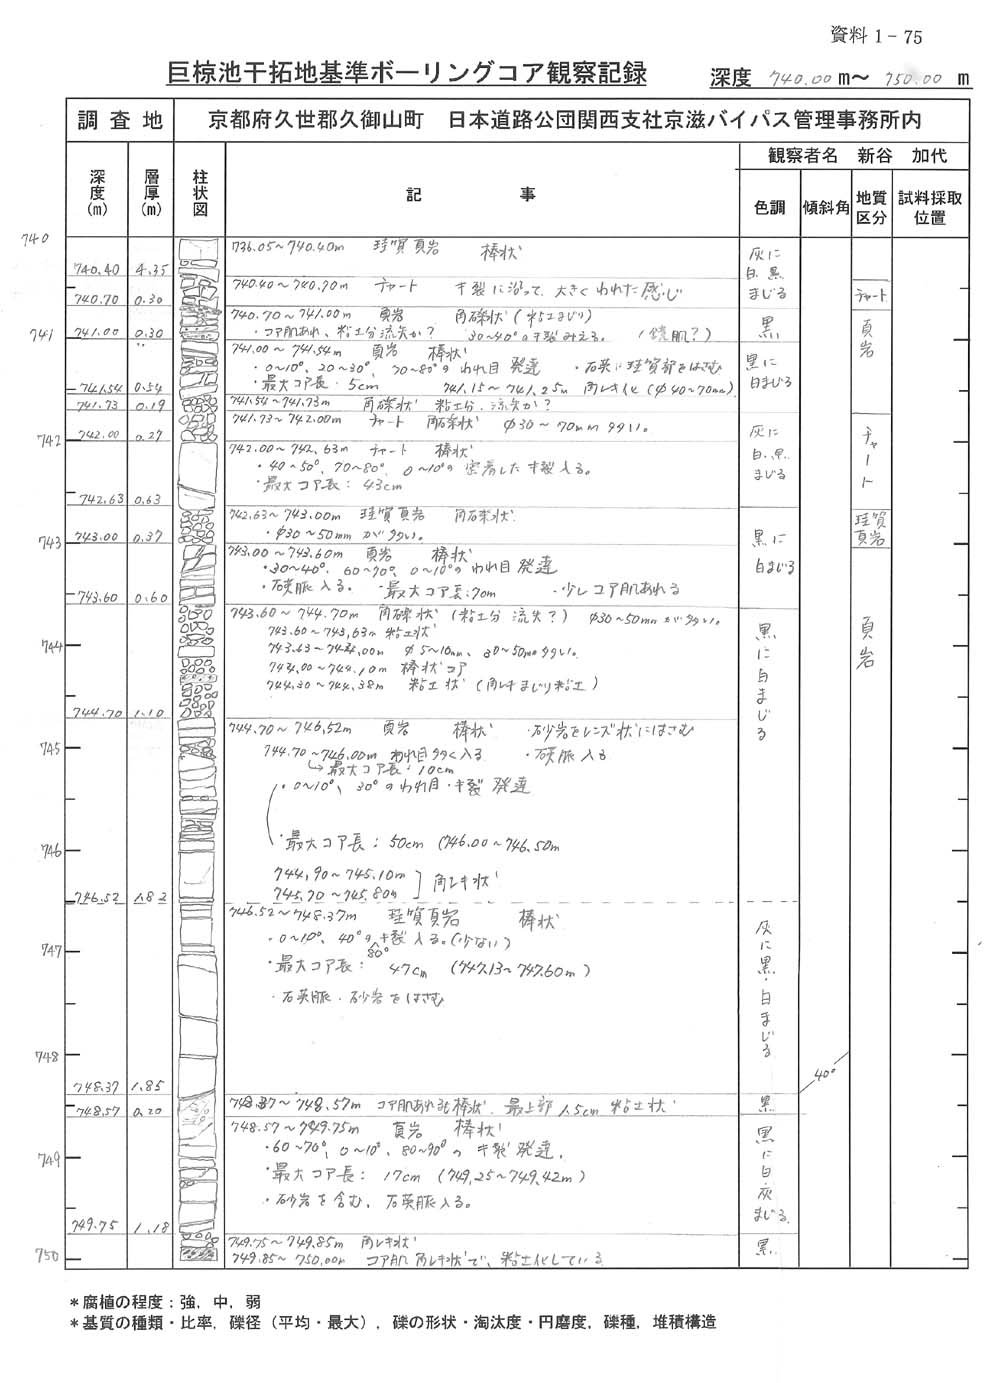 資料1-75
巨椋池干拓地基準ボーリングコア観察記録
深度 740.00m～ 750.00 m
調査地
京都府久世郡久御山町 日本道路公団関西支社京滋バイパス管理事務所内
観察者名 新谷 加代
深度(m)
層厚(m)
柱状図
記事
色調
傾斜角
地質区分
試料採取位置
740
736.05～740.40m 珪質頁岩 棒状
740.40 4.35
灰に白、黒まじる
740.40～740.70m チャート キ裂に沿って、大きくわれた感じ
740.70 0.30
チャート
740.70～741.00m 頁岩 角礫状(粘土まじり)
・コア肌あれ、粘土分流失か? 30～40°のキ裂みえる。 (鏡肌?)
741 741.00 0.30
黒
頁岩
741.00～741.54m 頁岩 棒状
・0～10°、20～30°、70～80°のわれ目 発達 ・石英、珪質部をはさむ
・最大コア長・5cm 741.15～741.25m 角レキ化(φ40～70mm)
741.54 0.54
黒に白まじる
741.54～741.73m 角礫状 粘土分、流失か?
741.73 0.19
741.73～742.00m チャート 角礫状 φ30～70mm多い。
742 742.00 0.27
742.00～742.63m チャート 棒状
・40～50°、70～80°、0～10°の密着したキ裂入る。
・最大コア長: 43cm
742.63 0.63
灰に白、黒まじる
チャート
742.63～743.00m 珪質頁岩 角礫状
・φ30～50mmが多い。
743 743.00 0.37
珪質頁岩
743.00～743.60m 頁岩 棒状
・30～40°、60～70°、0～10°のわれ目発達
・石英脈入る。 ・最大コア長:7cm ・少しコア肌あれる
743.60 0.60
黒に白まじる
743.60～744.70m 角礫状(粘土分 流失?) φ30～50mmが多い。
743.60～743.63m 粘土状
744 743.63～744.00m φ5～10mm、30～50mm多い。
744.00～744.10m 棒状コア
744.30～744.38m 粘土状(角レキまじり粘土)
744.70 1.10
黒に白まじる
頁岩
744.70～746.52m 頁岩 棒状 ・砂岩をレンズ状にはさむ
745 744.70～746.00m われ目多く入る ・石英脈入る
↳最大コア長:10cm
・0～10°、30°のわれ目・キ裂 発達
・最大コア長: 50cm (746.00～746.50m
746
744.90～745.10m
745.70～745.80m ] 角レキ状
746.52 1.82
746.52～748.37m 珪質頁岩 棒状
・0～10°、40°のキ裂入る。(少ない)
80°
747 ・最大コア長: 47cm (747.13～747.60m)
・石英脈・砂岩をはさむ
灰に黒・白まじる
748
748.37 1.85
40°
748.37～748.57m コア肌あれる棒状、最上部1.5cm粘土状
748.57 0.20
黒
748.57～749.75m 頁岩 棒状
・60～70°、0～10°、80～90°のキ裂発達。
749 ・最大コア長: 17cm (749.25～749.42m)
・砂岩を含む、石英脈入る。
749.75 1.18
黒に白、灰まじる
749.75～749.85m 角レキ状
750 749.85～750.00m コア肌 角レキ状で、粘土化している
黒
＊腐植の程度：強，中，弱
＊基質の種類・比率，礫径（平均・最大），礫の形状・淘汰度・円磨度，礫種，堆積構造